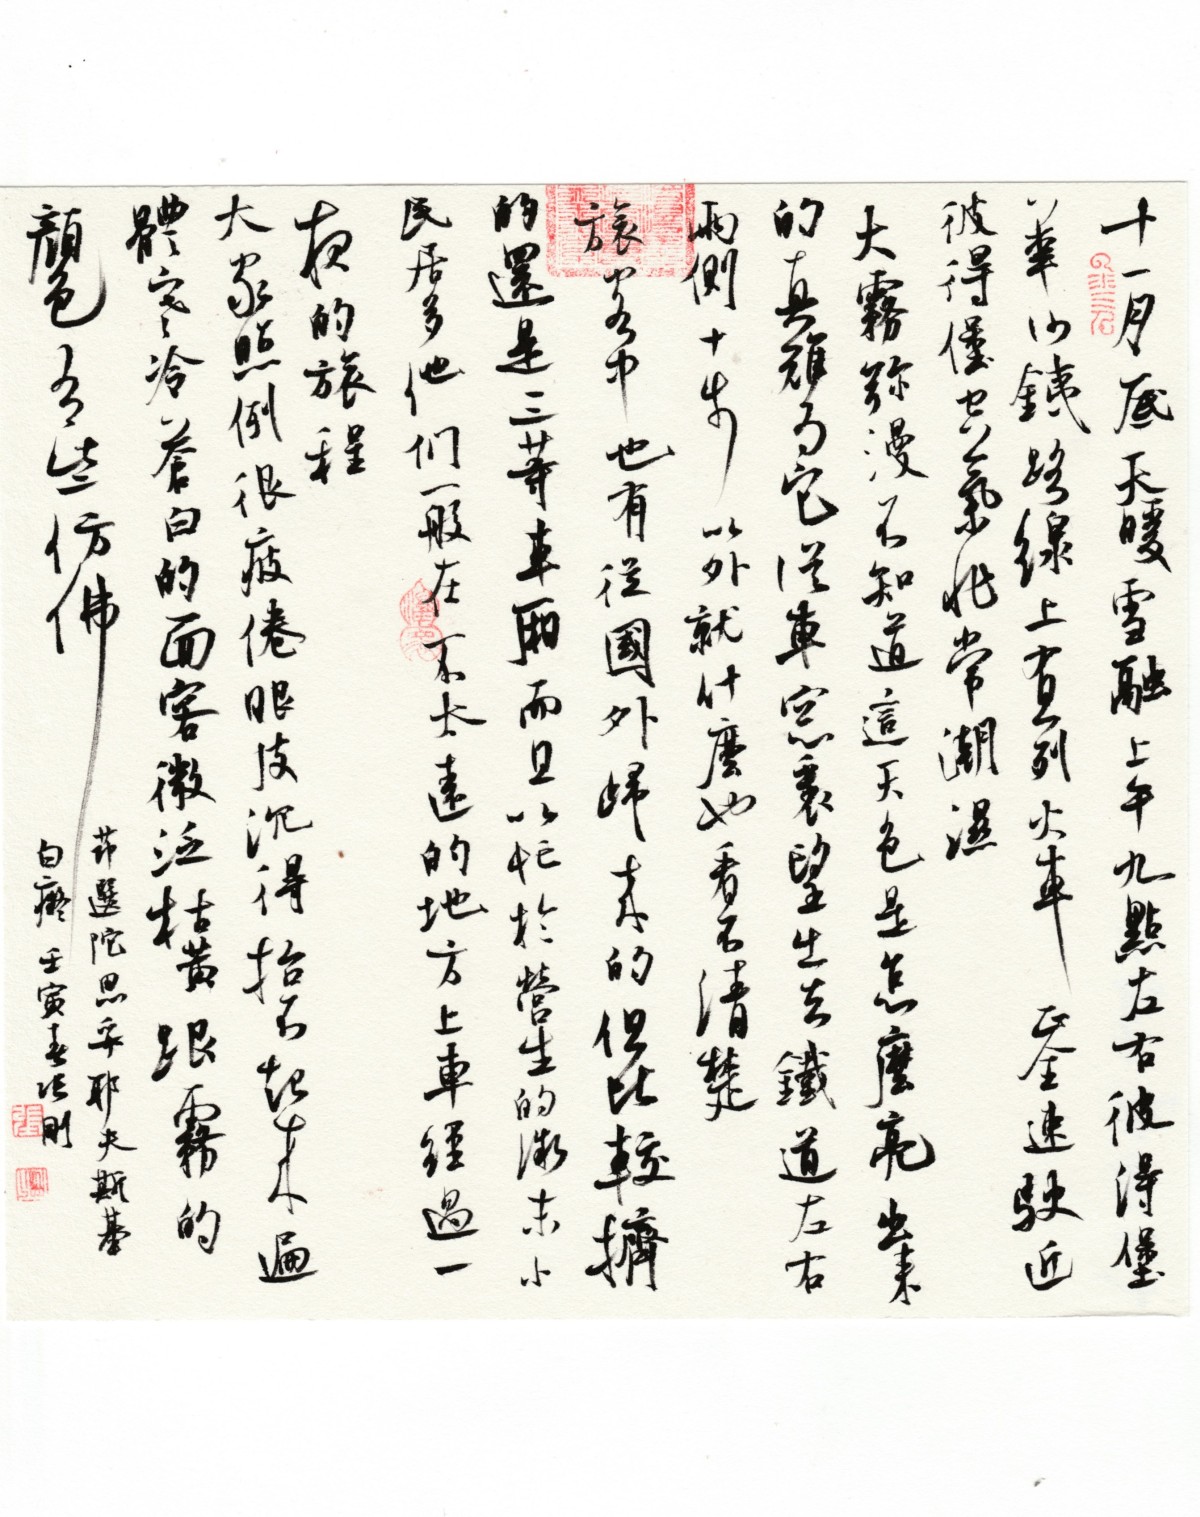 十一月底天暖雪融上午九點左右彼得堡
華沙鐵路線上有列火車 正全速駛近
彼得堡空氣非常潮濕
大霧彌漫不知道這天色是怎麼亮出來
的真難為它從車窗裏望出去鐵道左右
兩側十步以外就什麼也看不清楚
旅客中也有從國外歸來的但比較擠
的還是三等車廂而且以忙於營生的微末小
民居多他们一般在不太遠的地方上車經過一
夜的旅程
大家照例很疲倦眼皮沉得抬不起來遍
體寒冷蒼白的面容微泛枯黃跟霧的
顏色有些仿佛
節選陀思妥耶夫斯基
白癡 壬寅春張剛